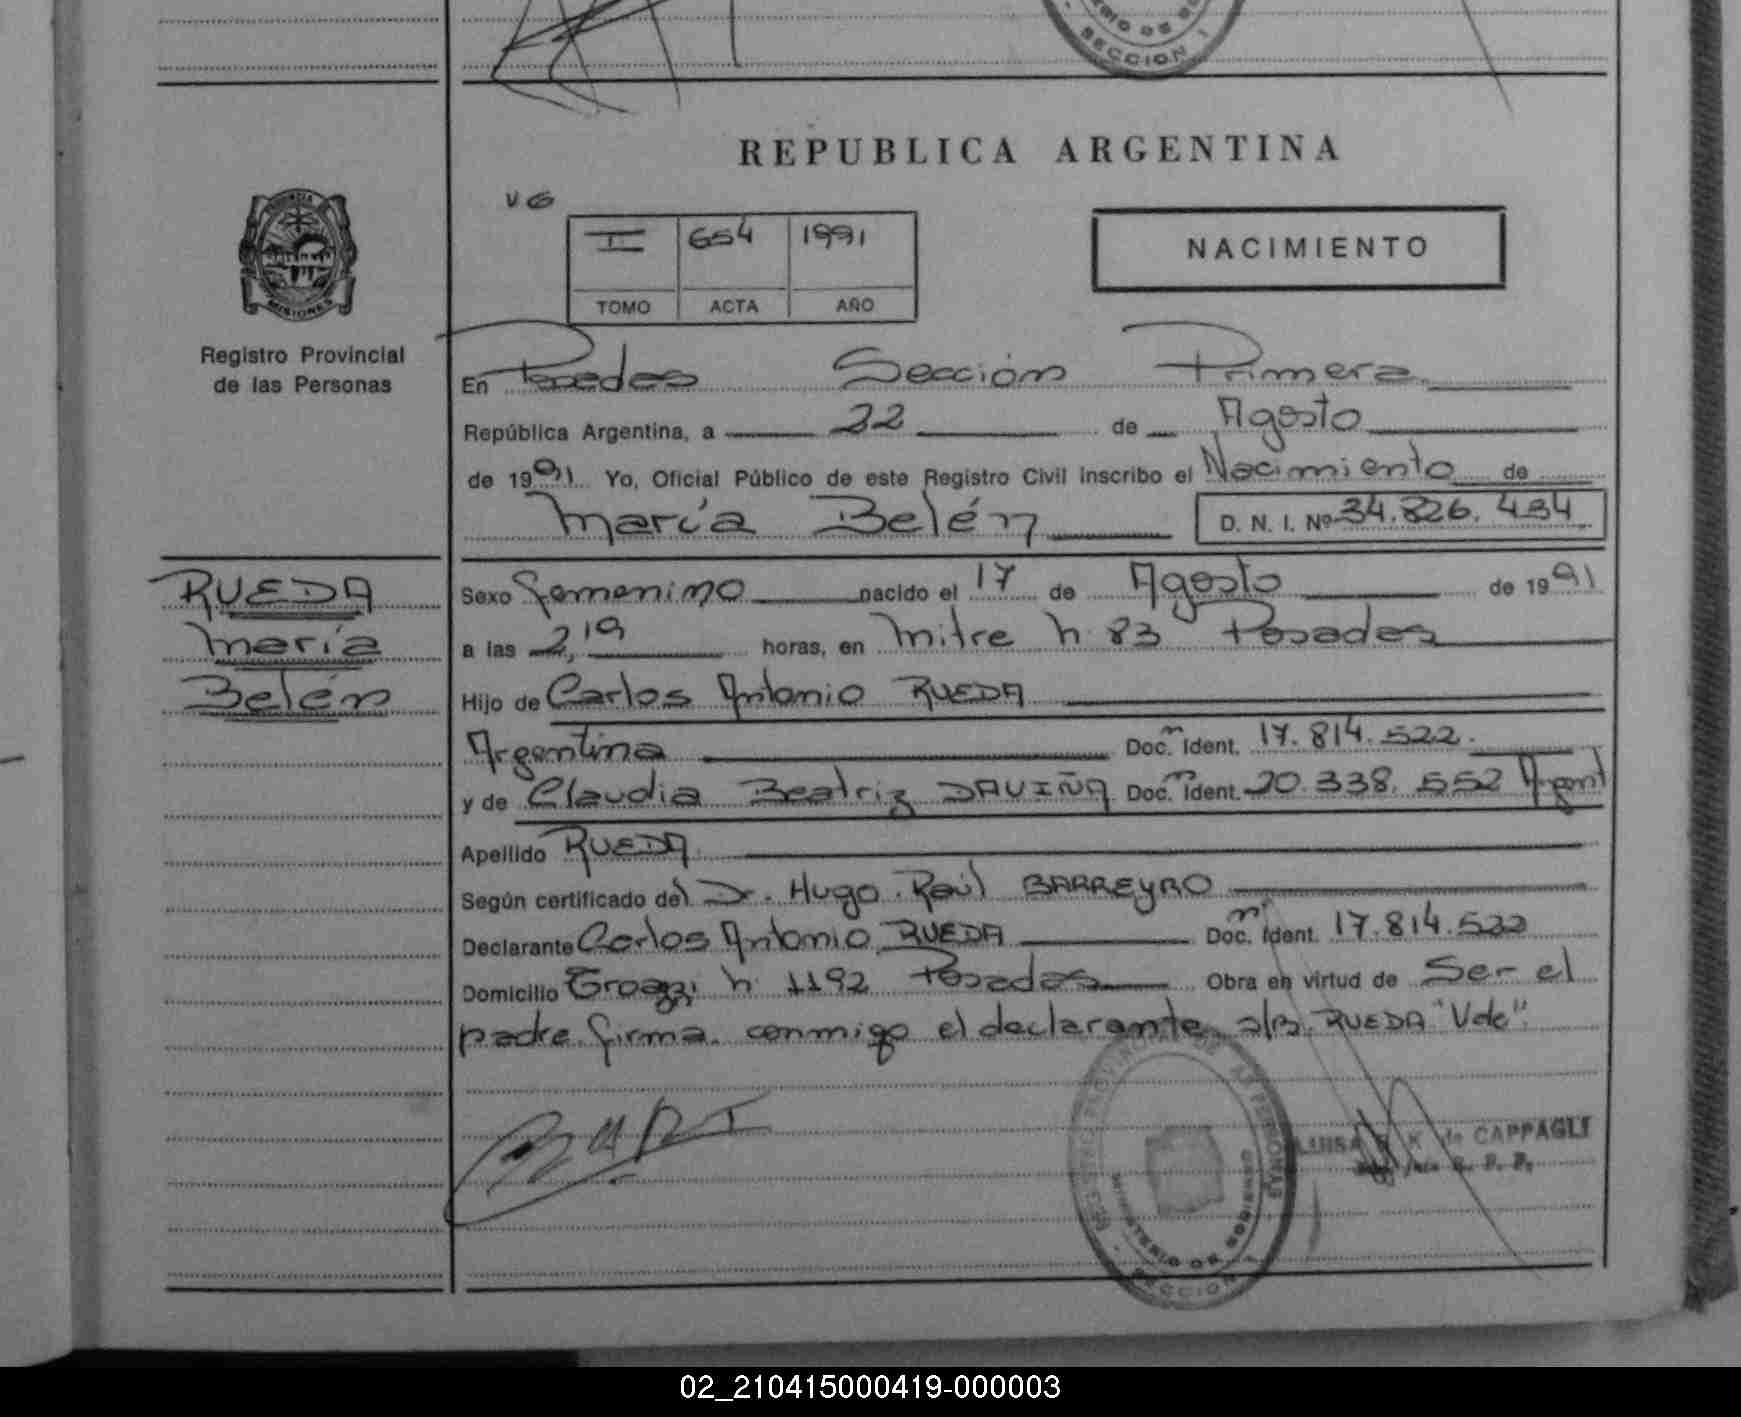 SECCION 1
REPUBLICA ARGENTINA
PROVINCIA
MISIONES
Registro Provincial
de las Personas
VG
II 654 1991
TOMO ACTA AÑO
NACIMIENTO
En Posadas Sección Primera
República Argentina, a 22 de Agosto
de 1991 Yo, Oficial Público de este Registro Civil inscribo el Nacimiento de
María Belén D. N. I. Nº 34.826.434
RUEDA
María
Belén
Sexo femenino nacido el 17 de Agosto de 1991
a las 2,19 horas, en Mitre n 83 Posadas
Hijo de Carlos Antonio RUEDA
Argentina Doc. Ident. 17.814.522.
y de Claudia Beatriz DAVIÑA Doc. Ident. 20.338.552 Argent
Apellido RUEDA
Según certificado del Dr. Hugo Raúl BARREYRO
Declarante Carlos Antonio RUEDA Doc. Ident. 17.814.522
Domicilio n 1192 Posadas Obra en virtud de Ser el
padre firma conmigo el declarante RUEDA "Vale"
REGISTRO PROVINCIAL DE LAS PERSONAS
MINISTERIO DE GOBIERNO
SECCION 1
LUISA K de CAPPAGLI
02_210415000419-000003